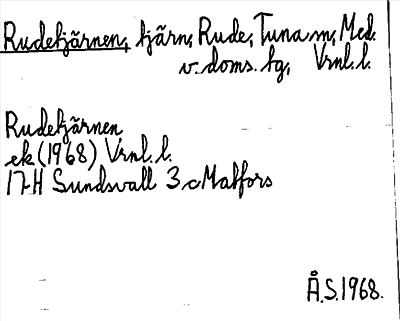 Rudetjärnen, tjärn, Rude, Tuna sn, Med.
v. doms. tg, Vrnl. l.
Rudetjärnen
ek (1968) Vrnl. l.
17H Sundsvall 3 c Matfors
Å.S. 1968.